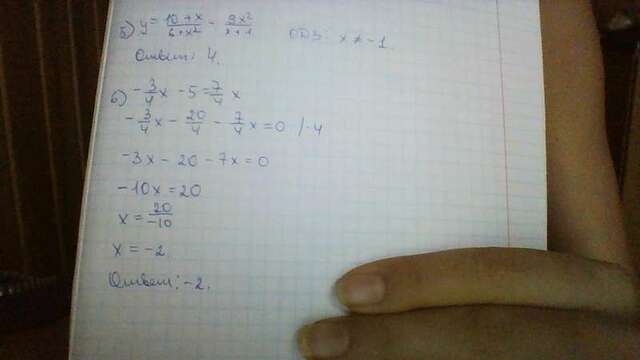 5) y = (10+x)/(6+x²) - (9x²)/(x+1) ОДЗ: x ≠ -1.
Ответ: 4.
6) -3/4x - 5 = 7/4 x
-3/4x - 20/4 - 7/4x = 0 /·4
-3x - 20 - 7x = 0
-10x = 20
x = 20/-10
x = -2.
Ответ: -2.